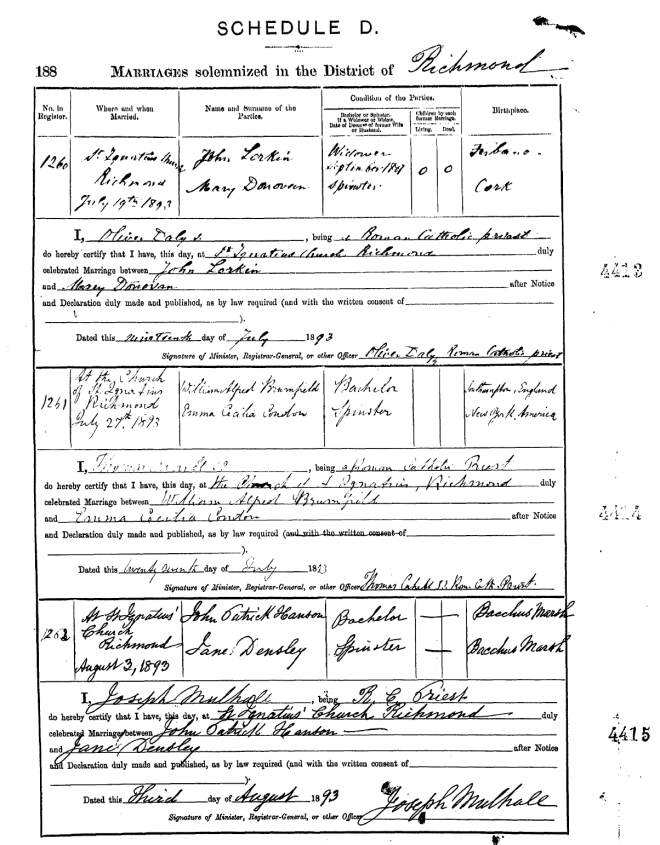 SCHEDULE D.
188 MARRIAGES solemnized in the District of Richmond
No. in Register.
Where and when Married.
Name and Surname of the Parties.
Condition of the Parties.
Bachelor or Spinster. If a Widower or Widow, Date of Decease of former Wife or Husband.
Children by each former Marriage.
Living. Dead.
Birthplace.
1260
St Ignatius
Richmond
July 19th 1893
John Lorkin
Mary Donovan
Widower
September
Spinster
0 0
Cork
I, Oliver Daly S.J., being a Roman Catholic priest
do hereby certify that I have, this day, at St Ignatius Church Richmond duly
celebrated Marriage between John Lorkin
and Mary Donovan after Notice
and Declaration duly made and published, as by law required (and with the written consent of
).
Dated this nineteenth day of July 1893
Signature of Minister, Registrar-General, or other Officer Oliver Daly, Roman Catholic priest
4413
1261
At the Church
of St. Ignatius
Richmond
July 27th 1893
William Alfred Brumfield
Emma Cecilia Condon
Bachelor
Spinster
Southampton, England
New York, America
I, Thomas, being a Roman Catholic Priest
do hereby certify that I have, this day, at the Church of St Ignatius, Richmond duly
celebrated Marriage between William Alfred Brumfield
and Emma Cecilia Condon after Notice
and Declaration duly made and published, as by law required (and with the written consent of
).
Dated this day of July 1893
Signature of Minister, Registrar-General, or other Officer Thomas Cahill S.J. Rom. Cath. Priest.
4414
1262
At St Ignatius'
Church
Richmond
August 3, 1893
John Patrick Hanson
Jane Densley
Bachelor
Spinster
Bacchus Marsh
Bacchus Marsh
I, Joseph Mulhall, being R. C. Priest
do hereby certify that I have, this day, at St Ignatius' Church Richmond duly
celebrated Marriage between John Patrick Hanson
and Jane Densley after Notice
and Declaration duly made and published, as by law required (and with the written consent of
).
Dated this Third day of August 1893
Signature of Minister, Registrar-General, or other Officer Joseph Mulhall
4415